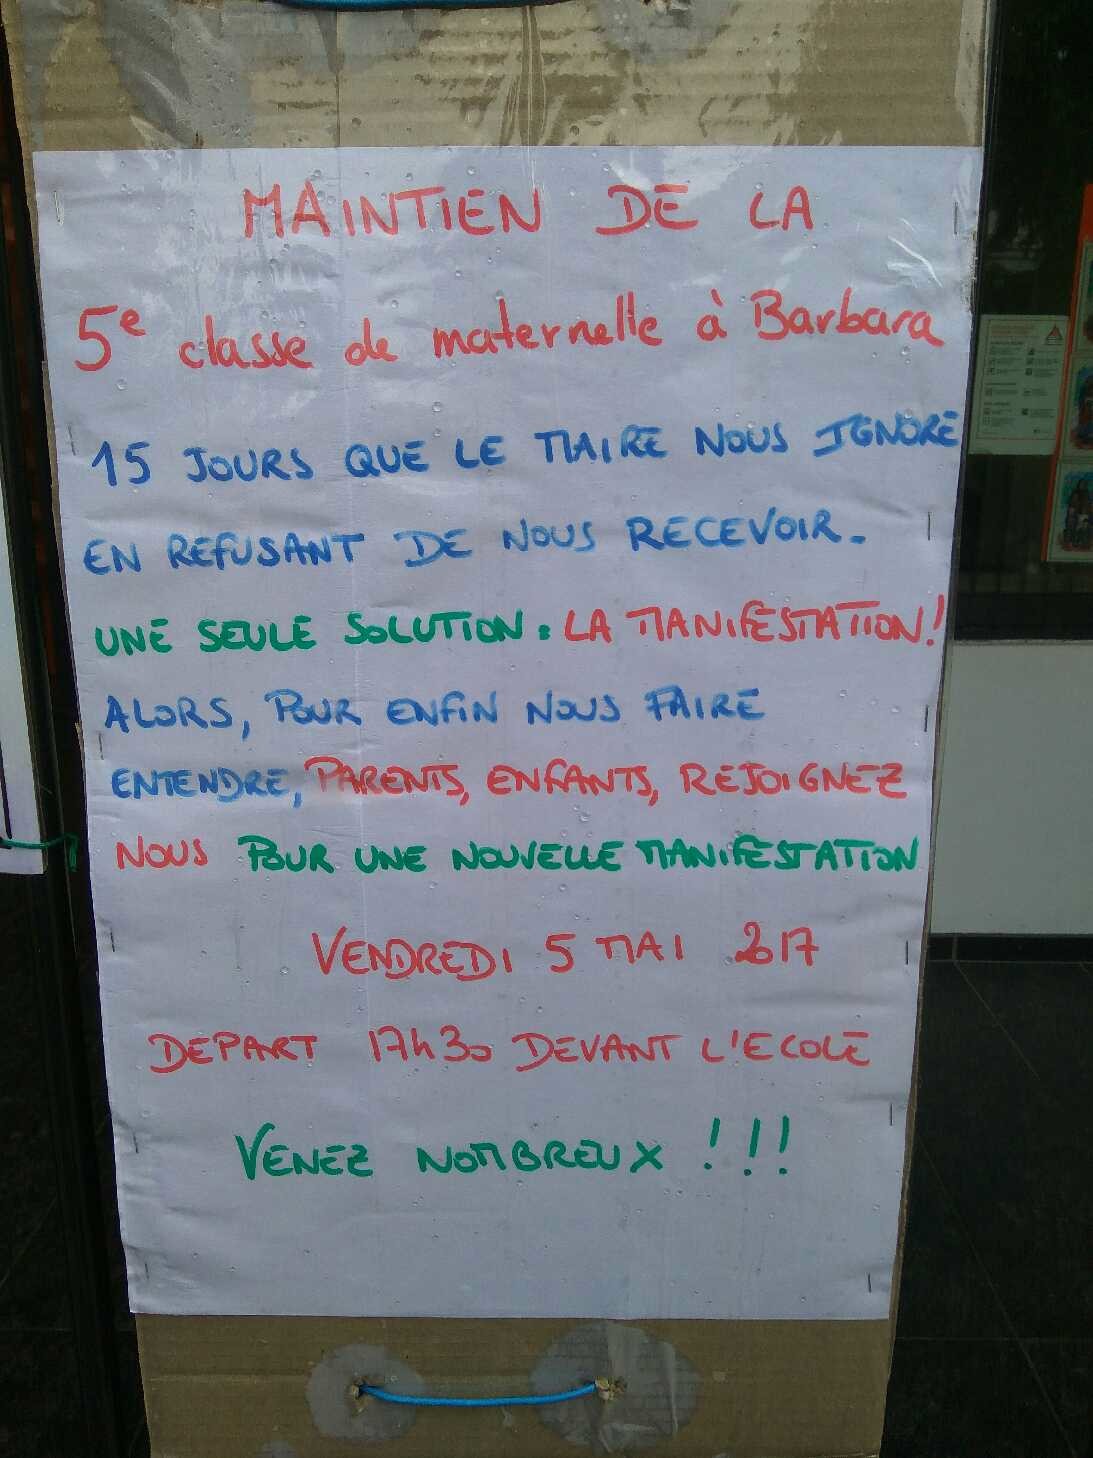 MAINTIEN DE LA
5e classe de maternelle à Barbara
15 JOURS QUE LE MAIRE NOUS IGNORE
EN REFUSANT DE NOUS RECEVOIR.
UNE SEULE SOLUTION : LA MANIFESTATION !
ALORS, POUR ENFIN NOUS FAIRE
ENTENDRE, PARENTS, ENFANTS, REJOIGNEZ
NOUS POUR UNE NOUVELLE MANIFESTATION
VENDREDI 5 MAI 2017
DEPART 17h30 DEVANT L'ECOLE
VENEZ NOMBREUX !!!